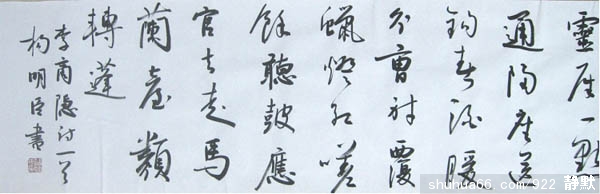 靈犀一點
通隔座送
鈎春酒暖
分曹射覆
蠟燈紅嗟
餘聽鼓應
官去走馬
蘭臺類
轉蓬
李商隱詩一首
楊明臣書
shuhua66.com/922 静默